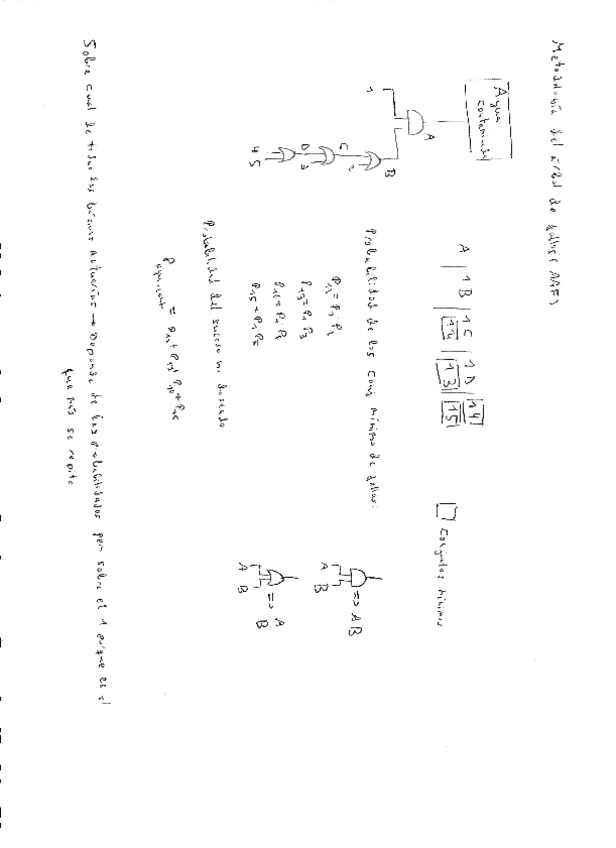 Metodología del árbol de fallos (AAF)
Agua
contaminada
A
1
B
C
2
D
3
4
5
A | 1 B | 1 C | 1 D | 1 4
12 | 13 | 15
Conjuntos mínimos
Probabilidad de los conj mínimo de fallos:
P12 = P1 · P2
P13 = P1 P3
P14 = P1 P4
P15 = P1 P5
A B => A B
A B => A
B
Probabilidad del suceso no deseado
P agua cont = P12 + P13 + P14 + P15
Sobre cual de todas las básicas actuarías → Depende de las probabilidades pero sobre el 1 porque es el
que más se repite